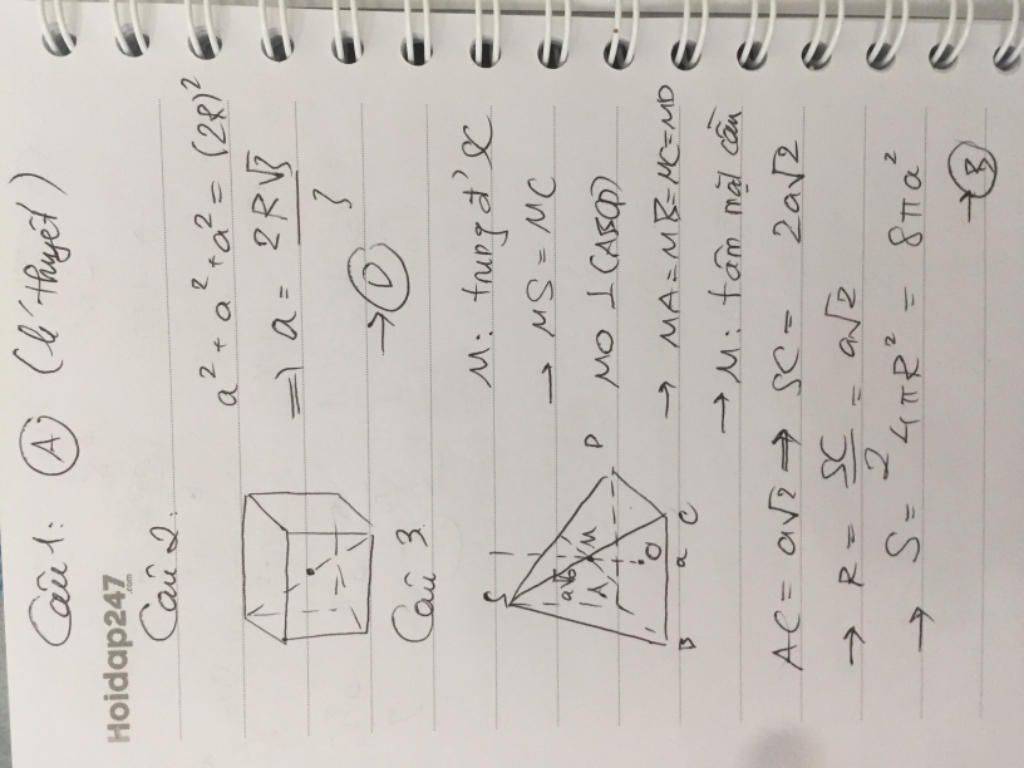 Câu 1: A (lí thuyết)
Hoidap247.com
Câu 2:
a² + a² + a² = (2R)²
=> a = 2R√3 / 3
→ D
Câu 3
M: trung đ' SC
→ MS = MC
MO ⊥ (ABCD)
→ MA = MB = MC = MD
→ M: tâm mặt cầu
S
a√6
A
M
D
O
B
a
C
AC = a√2 → SC = 2a√2
→ R = SC / 2 = a√2
→ S = 4πR² = 8πa²
→ B